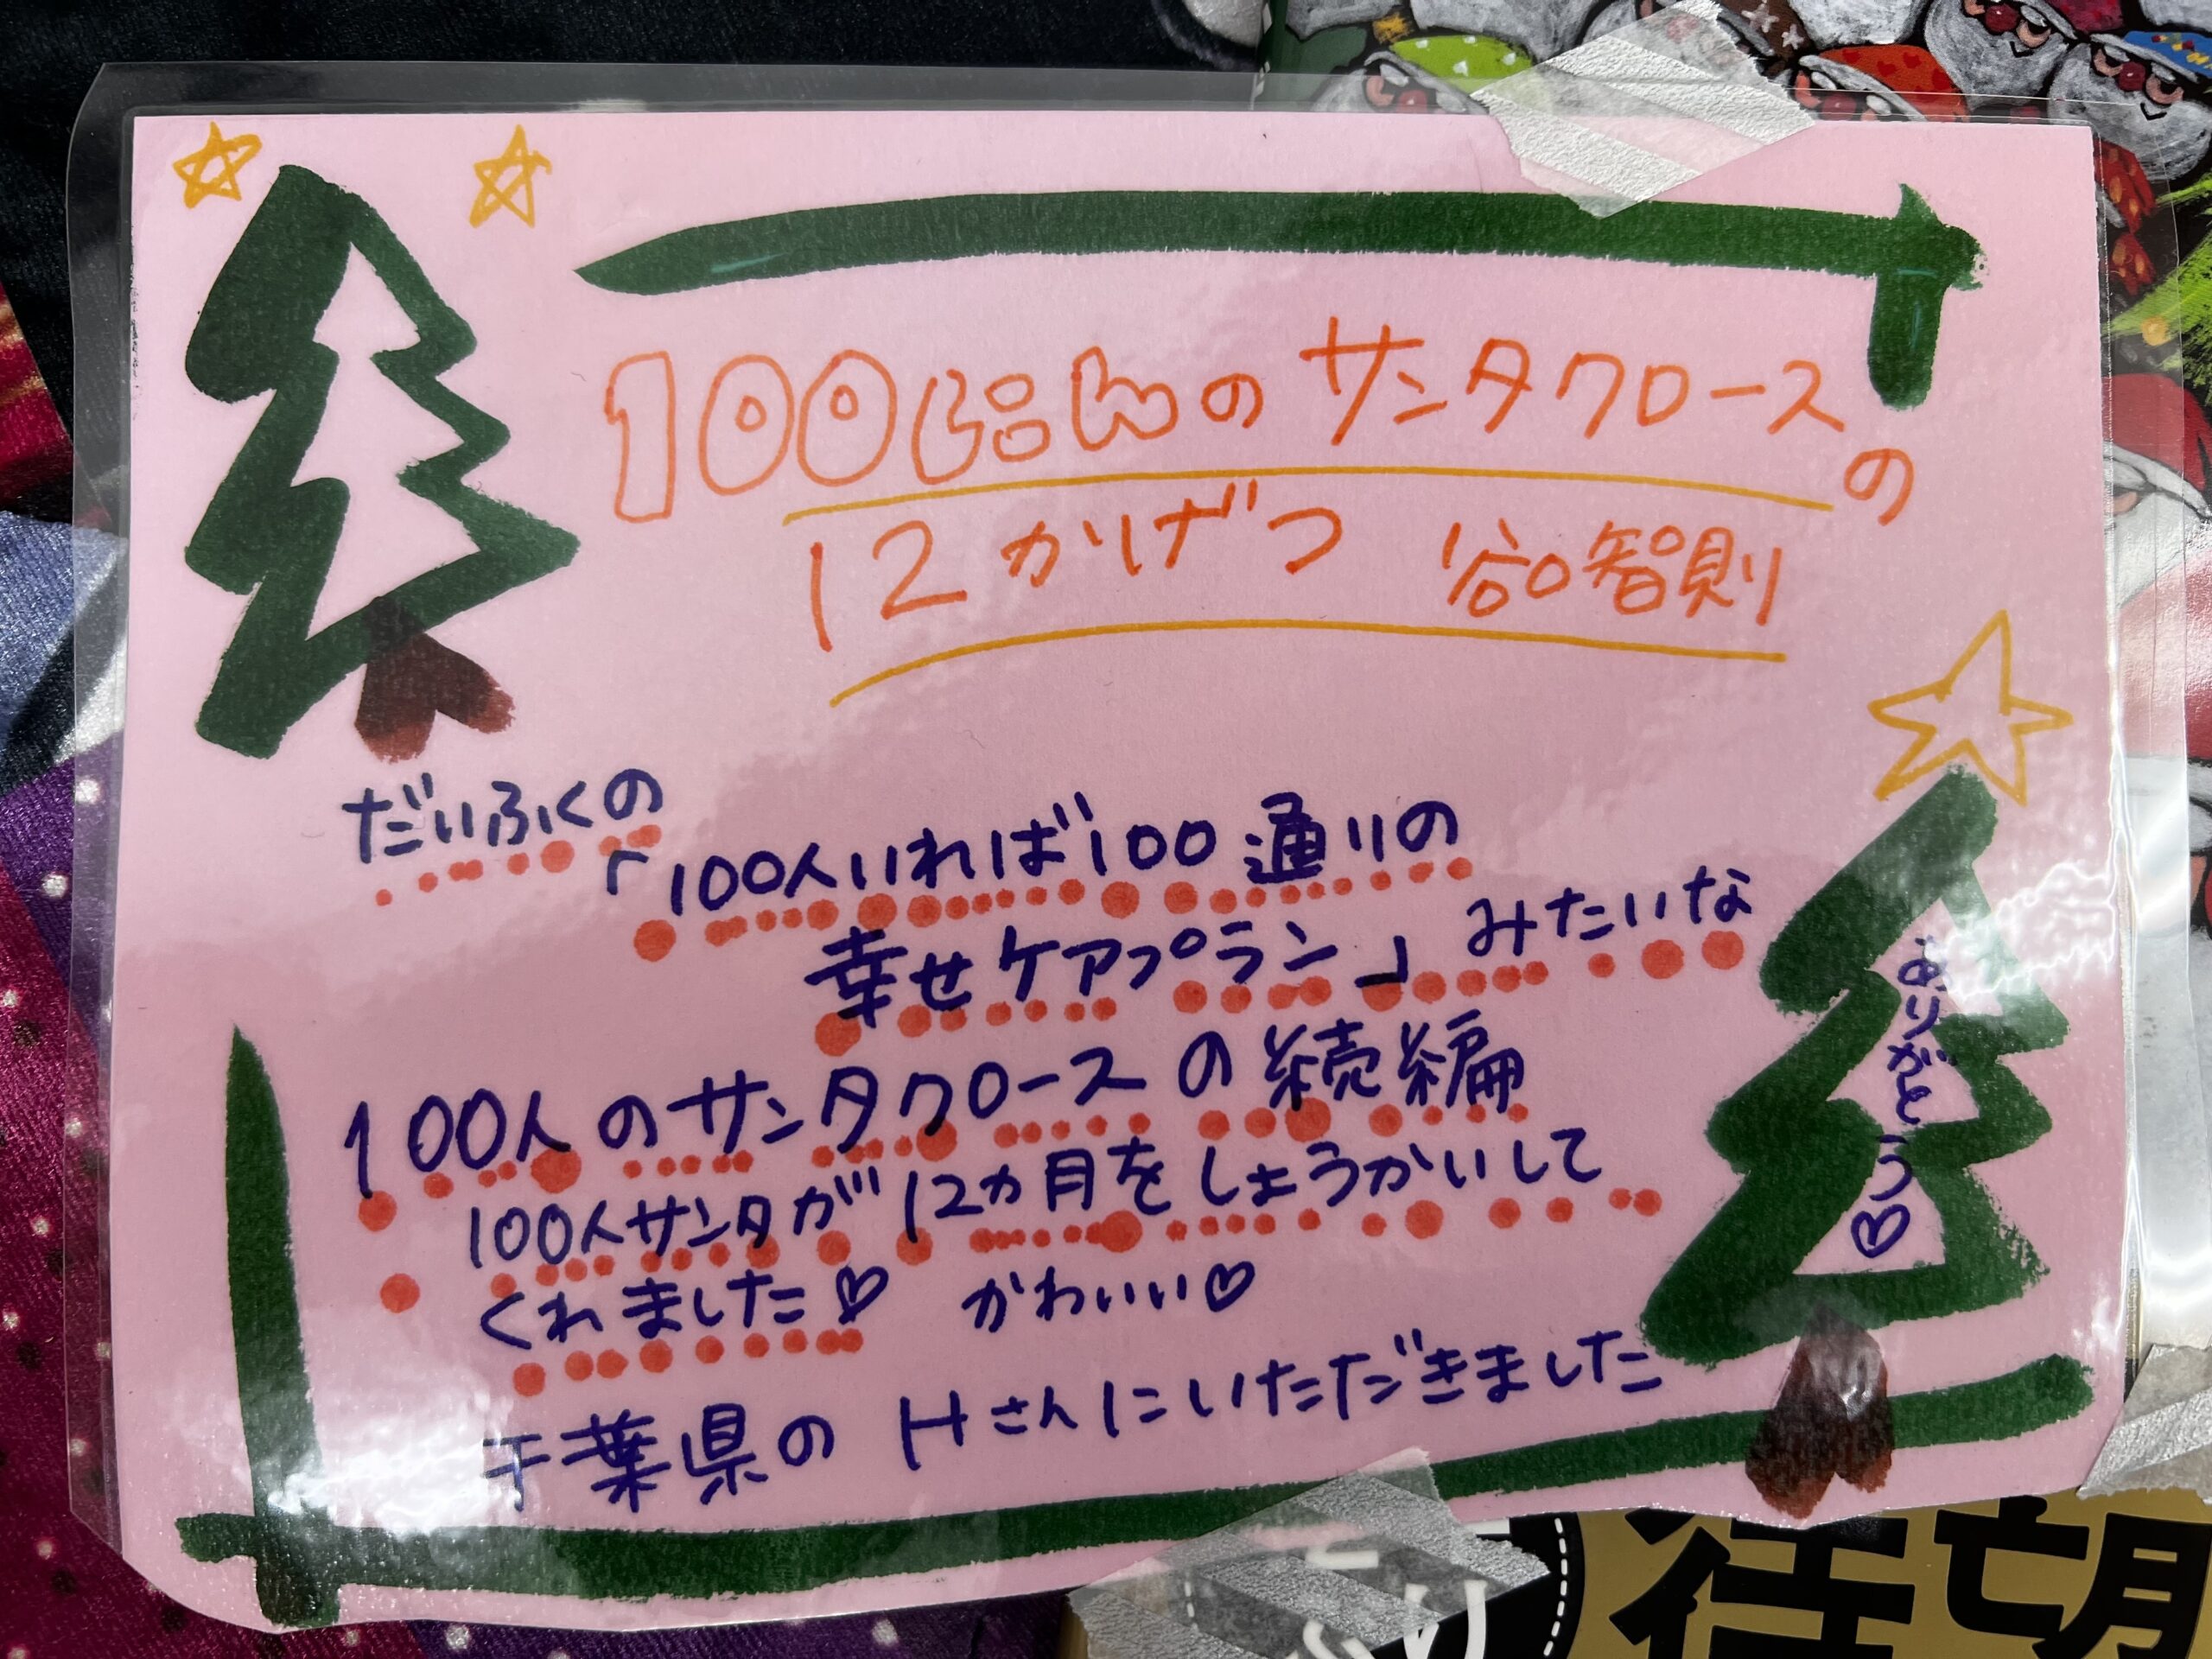 100にんのサンタクロースの
12かげつ 谷口智則
だいふくの
「100人いれば100通りの
幸せケアプラン」みたいな
100人のサンタクロースの続編
100人サンタが12カ月をしょうかいして
くれました♡ かわいい♡
千葉県のHさんにいただきました
ありがとう♡
待望